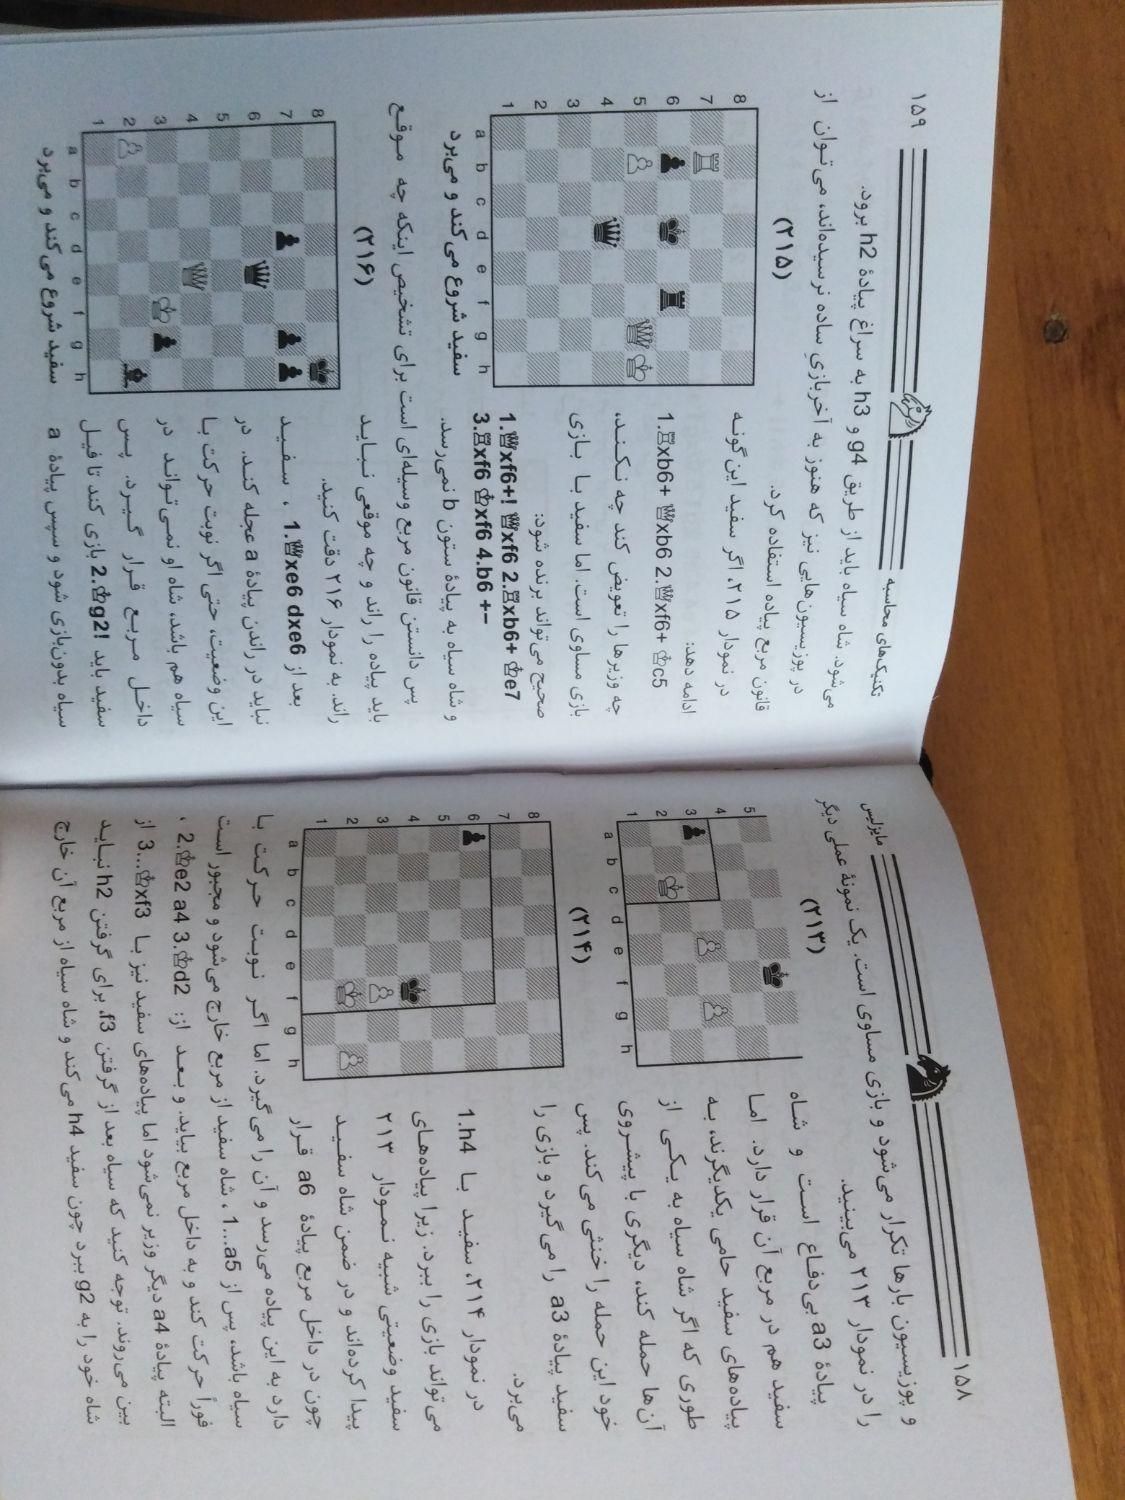 ۱۵۸
ماپزلیس
و پوزیسیون بارها تکرار می‌شود و بازی مساوی است. یک نمونهٔ عملی دیگر
را در نمودار ۲۱۳ می‌بینید.
(۲۱۳)
5
4
3
2
1
a b c d e f g h
پیادهٔ a3 بی‌دفاع است و شاه
سفید هم در مربع آن قرار دارد. اما
پیاده‌های سفید حامی یکدیگرند، به
طوری که اگر شاه سیاه به یکی از
آن‌ها حمله کند، دیگری با پیشروی
خود این حمله را خنثی می‌کند. پس
سفید پیادهٔ a3 را می‌گیرد و بازی را
می‌برد.
(۲۱۴)
8
7
6
5
4
3
2
1
a b c d e f g h
در نمودار ۲۱۴، سفید با 1.h4
می‌تواند بازی را ببرد. زیرا پیاده‌های
سفید وضعیتی شبیه نمودار ۲۱۳
پیدا کرده‌اند و در ضمن شاه سفید
چون در داخل مربع پیادهٔ a6 قرار
دارد به این پیاده می‌رسد و آن را می‌گیرد. اما اگر نوبت حرکت با
سیاه باشد، پس از 1...a5 ، شاه سفید از مربع خارج می‌شود و مجبور است
فوراً حرکت کند و به داخل مربع بیاید. و بعد از: 2.♔e2 a4 3.♔d2 ،
البته پیادهٔ a4 دیگر وزیر نمی‌شود اما پیاده‌های سفید نیز با 3...♔xf3 از
بین می‌روند. توجه کنید که سیاه بعد از گرفتن f3، برای گرفتن h2 نباید
شاه خود را به g2 ببرد چون سفید h4 می‌کند و شاه سیاه از مربع آن خارج
۱۵۹
تکنیک‌های محاسبه
می‌شود. شاه سیاه باید از طریق g4 و h3 به سراغ پیادهٔ h2 برود.
در پوزیسیون‌هایی نیز که هنوز به آخربازیِ ساده نرسیده‌اند، می‌توان از
قانون مربع پیاده استفاده کرد.
(۲۱۵)
8
7
6
5
4
3
2
1
a b c d e f g h
سفید شروع می‌کند و می‌برد
در نمودار ۲۱۵، اگر سفید این‌گونه
ادامه دهد:
1.♖xb6+ ♕xb6 2.♕xf6+ ♔c5
چه وزیرها را تعویض کند چه نکند،
بازی مساوی است. اما سفید با بازی
صحیح می‌تواند برنده شود:
1.♕xf6+! ♕xf6 2.♖xb6+ ♔e7
3.♖xf6 ♔xf6 4.b6 +−
و شاه سیاه به پیادهٔ ستون b نمی‌رسد.
پس دانستن قانون مربع وسیله‌ای است برای تشخیص اینکه چه موقع
باید پیاده را راند و چه موقعی نباید
راند. به نمودار ۲۱۶ دقت کنید.
(۲۱۶)
8
7
6
5
4
3
2
1
a b c d e f g h
سفید شروع می‌کند و می‌برد
بعد از 1.♕xe6 dxe6 ، سفید
نباید در راندن پیادهٔ a عجله کند. در
این وضعیت، حتی اگر نوبت حرکت با
سیاه هم باشد، شاه او نمی‌تواند در
داخل مربع قرار گیرد. پس
سفید باید 2.♔g2! بازی کند تا فیل
سیاه بدون‌بازی شود و سپس پیادهٔ a